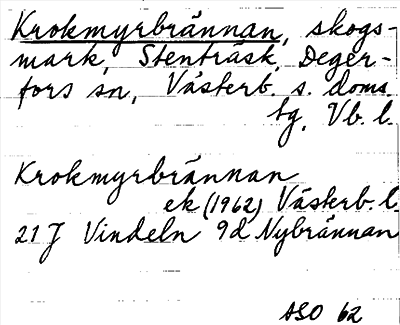 Krokmyrbrännan, skogs-
mark, Stenträsk, Deger-
fors sn, Västerb. s. doms.
tg, Vb. l.
Krokmyrbrännan
ek (1962) Västerb. l.
21 J Vindeln 9d Nybrännan
ASO 62